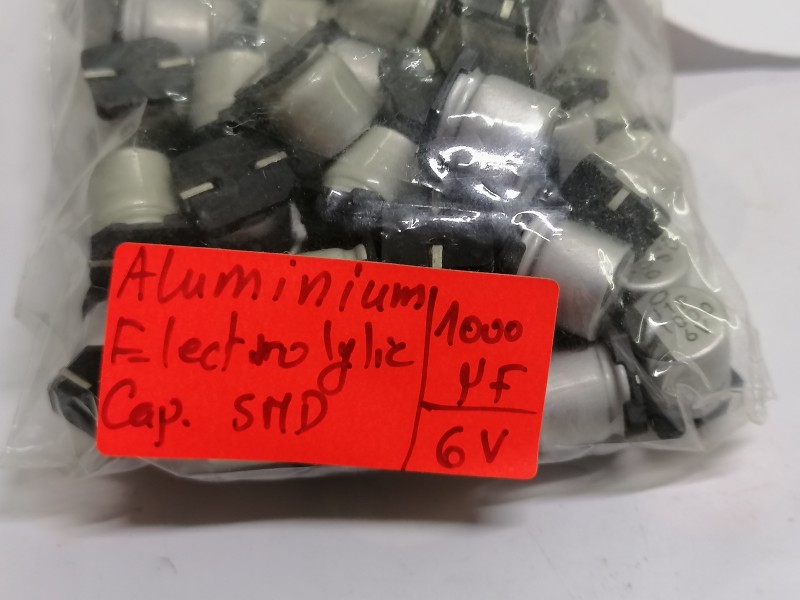 Aluminium
Electrolytic
Cap. SMD
1000
µF
6V
1000
6V